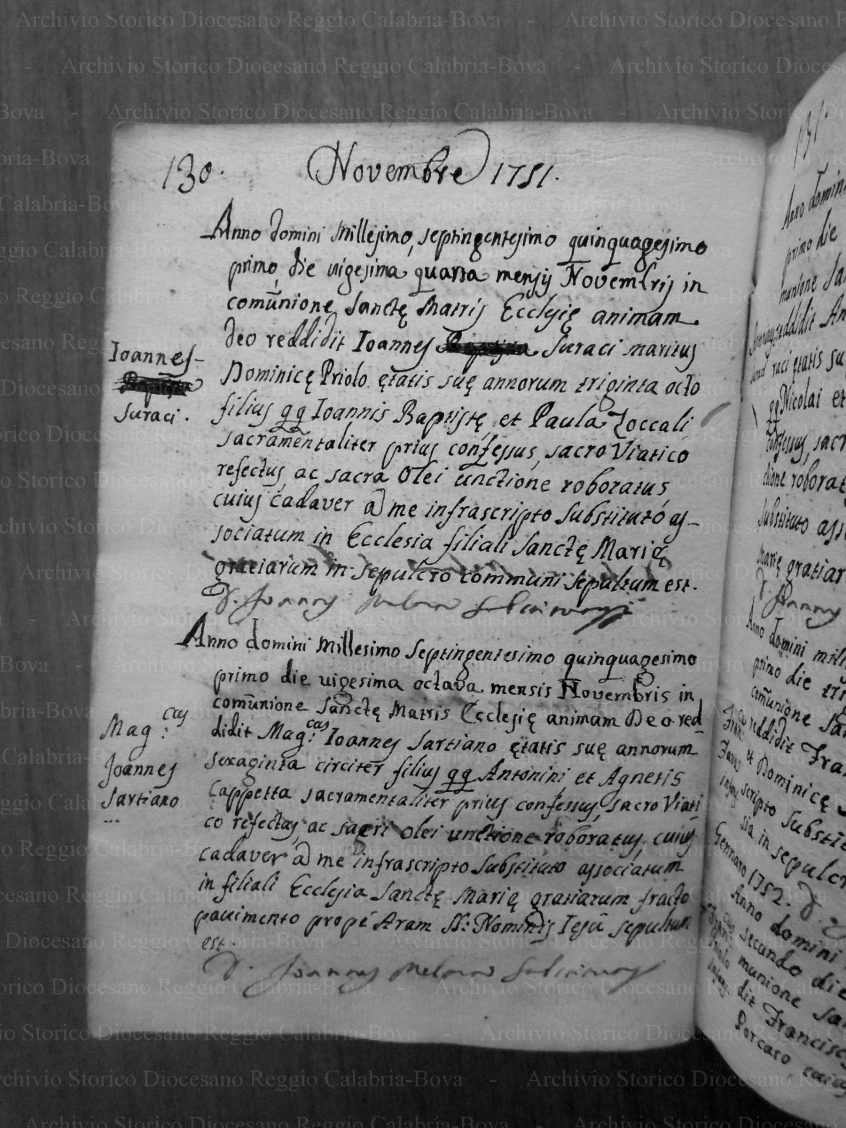 130. Novembre 1751.
Anno domini Millesimo septingentesimo quinquagesimo
primo die uigesima quarta mensis Novembris in
comũnione Sanctę Matris Ecclesię animam
deo reddidit Ioannes Suraci maritus
Dominicę Priolo ętatis suę annorum triginta octo
filius qq Ioannis Baptistę et Paula Zoccali
sacramentaliter prius confessus, sacro Viatico
refectus, ac sacra Olei unctione roboratus,
cuius cadaver a me infrascripto Substituto as-
sociatum in Ecclesia filiali Sanctę Marię
gratiarum in sepulcro communi sepultum est.
D. Ioannes
Ioannes
Suraci.
Anno domini Millesimo Septingentesimo quinquagesimo
primo die uigesima octava mensis Novembris in
comũnione Sanctę Matris Ecclesię animam Deo red-
didit Mag.cus Ioannes Sartiano ętatis suę annorum
sexaginta circiter filius qq Antonini et Agnetis
Cappetta sacramentaliter prius confessus, sacro Viati
co refectus, ac sacri Olei unctione roboratus, cuius
cadaver a me infrascripto Substituto associatum
in filiali Ecclesia Sanctę Marię gratiarum fracto
pauimento propé Aram SS: Nominis Iesũ sepultum
est.
D. Ioannes
Mag.cus
Joannes
Sartiano
131.
Anno domini
primo die
munione
reddidit
raci ętatis
qq Nicolai et
confessus,
roborat
Substituto
Marię gratiar
D. Ioannes
Anno domini
primo die
comũnione
reddidit Fra
et Dominicę
scripto Substit
in sepulcr
Gennaro 1752.
Anno domini
secundo die
munione
dit Francisc
Porcaro, cuius
Archivio Storico Diocesano Reggio Calabria-Bova